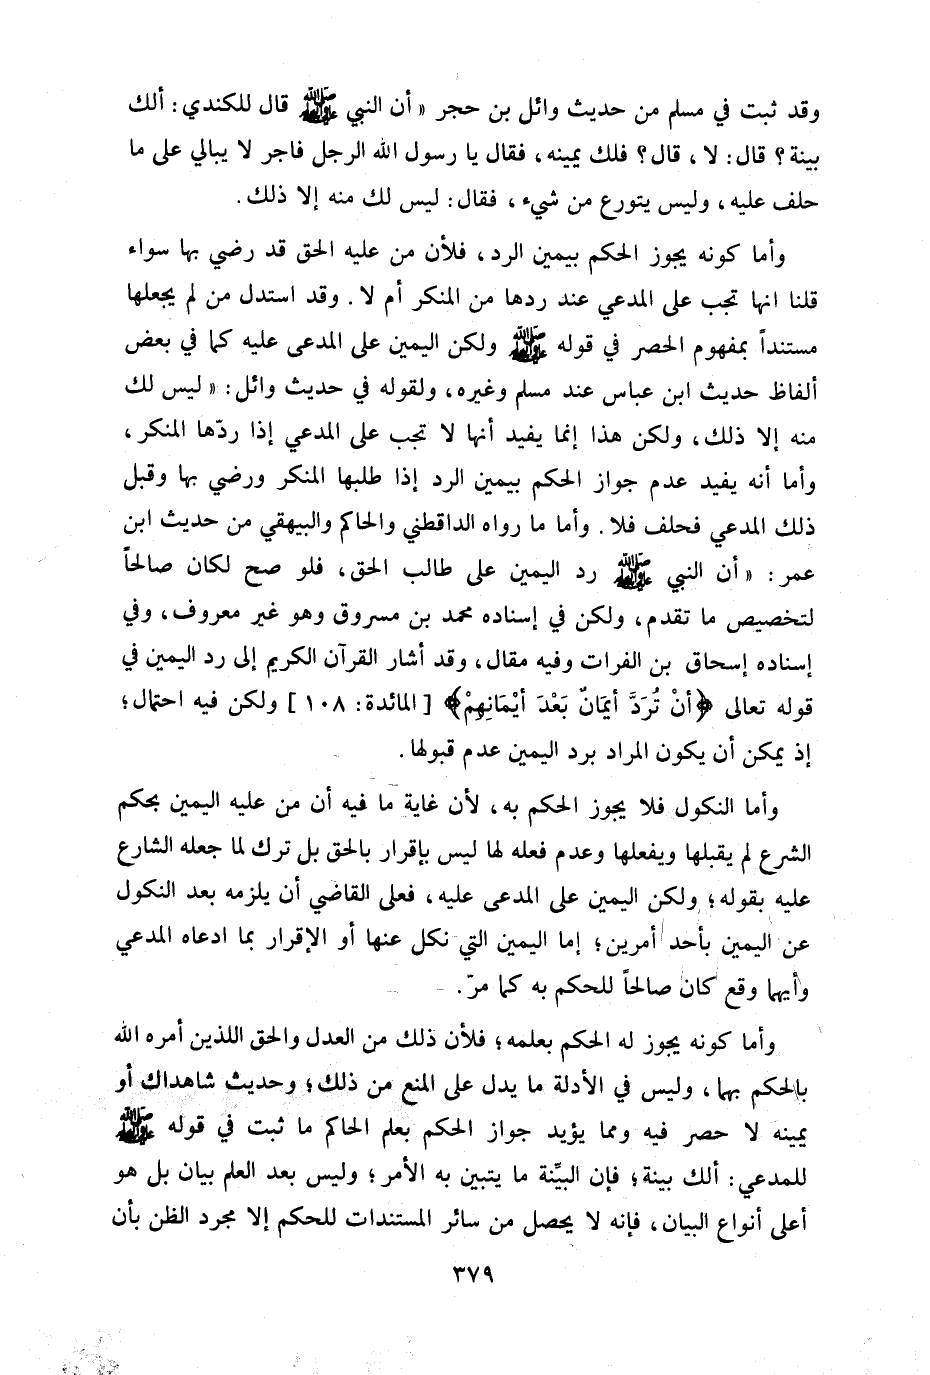 وقد ثبت في مسلم من حديث وائل بن حجر « أن النبي ﷺ قال للكندي : ألك
بينة ؟ قال : لا ، قال ؟ فلك يمينه ، فقال يا رسول الله الرجل فاجر لا يبالي على ما
حلف عليه ، وليس يتورع من شيء ، فقال : ليس لك منه إلا ذلك .
وأما كونه يجوز الحكم بيمين الرد ، فلأن من عليه الحق قد رضي بها سواء
قلنا انها تجب على المدعي عند ردها من المنكر أم لا . وقد استدل من لم يجعلها
مستنداً بمفهوم الحصر في قوله ﷺ ولكن اليمين على المدعى عليه كما في بعض
ألفاظ حديث ابن عباس عند مسلم وغيره ، ولقوله في حديث وائل : « ليس لك
منه إلا ذلك ، ولكن هذا إنما يفيد أنها لا تجب على المدعي إذا ردّها المنكر ،
وأما أنه يفيد عدم جواز الحكم بيمين الرد إذا طلبها المنكر ورضي بها وقبل
ذلك المدعي فحلف فلا . وأما ما رواه الداقطني والحاكم والبيهقي من حديث ابن
عمر : « أن النبي ﷺ رد اليمين على طالب الحق ، فلو صح لكان صالحاً
لتخصيص ما تقدم ، ولكن في إسناده محمد بن مسروق وهو غير معروف ، وفي
إسناده إسحاق بن الفرات وفيه مقال ، وقد أشار القرآن الكريم إلى رد اليمين في
قوله تعالى ﴿أنْ تُرَدَّ أيمَانٌ بَعْدَ أيْمَانِهِمْ﴾ [ المائدة : ١٠٨ ] ولكن فيه احتمال ؛
إذ يمكن أن يكون المراد برد اليمين عدم قبولها .
وأما النكول فلا يجوز الحكم به ، لأن غاية ما فيه أن من عليه اليمين بحكم
الشرع لم يقبلها ويفعلها وعدم فعله لها ليس بإقرار بالحق بل ترك لما جعله الشارع
عليه بقوله ؛ ولكن اليمين على المدعى عليه ، فعلى القاضي أن يلزمه بعد النكول
عن اليمين بأحد أمرين ؛ إما اليمين التي نكل عنها أو الإقرار بما ادعاه المدعي
وأيهما وقع كان صالحاً للحكم به كما مرّ .
وأما كونه يجوز له الحكم بعلمه ؛ فلأن ذلك من العدل والحق اللذين أمره الله
بالحكم بهما ، وليس في الأدلة ما يدل على المنع من ذلك ؛ وحديث شاهداك أو
يمينه لا حصر فيه ومما يؤيد جواز الحكم بعلم الحاكم ما ثبت في قوله ﷺ
للمدعي : ألك بينة ؛ فإن البيِّنة ما يتبين به الأمر ؛ وليس بعد العلم بيان بل هو
أعلى أنواع البيان ، فإنه لا يحصل من سائر المستندات للحكم إلا مجرد الظن بأن
٣٧٩